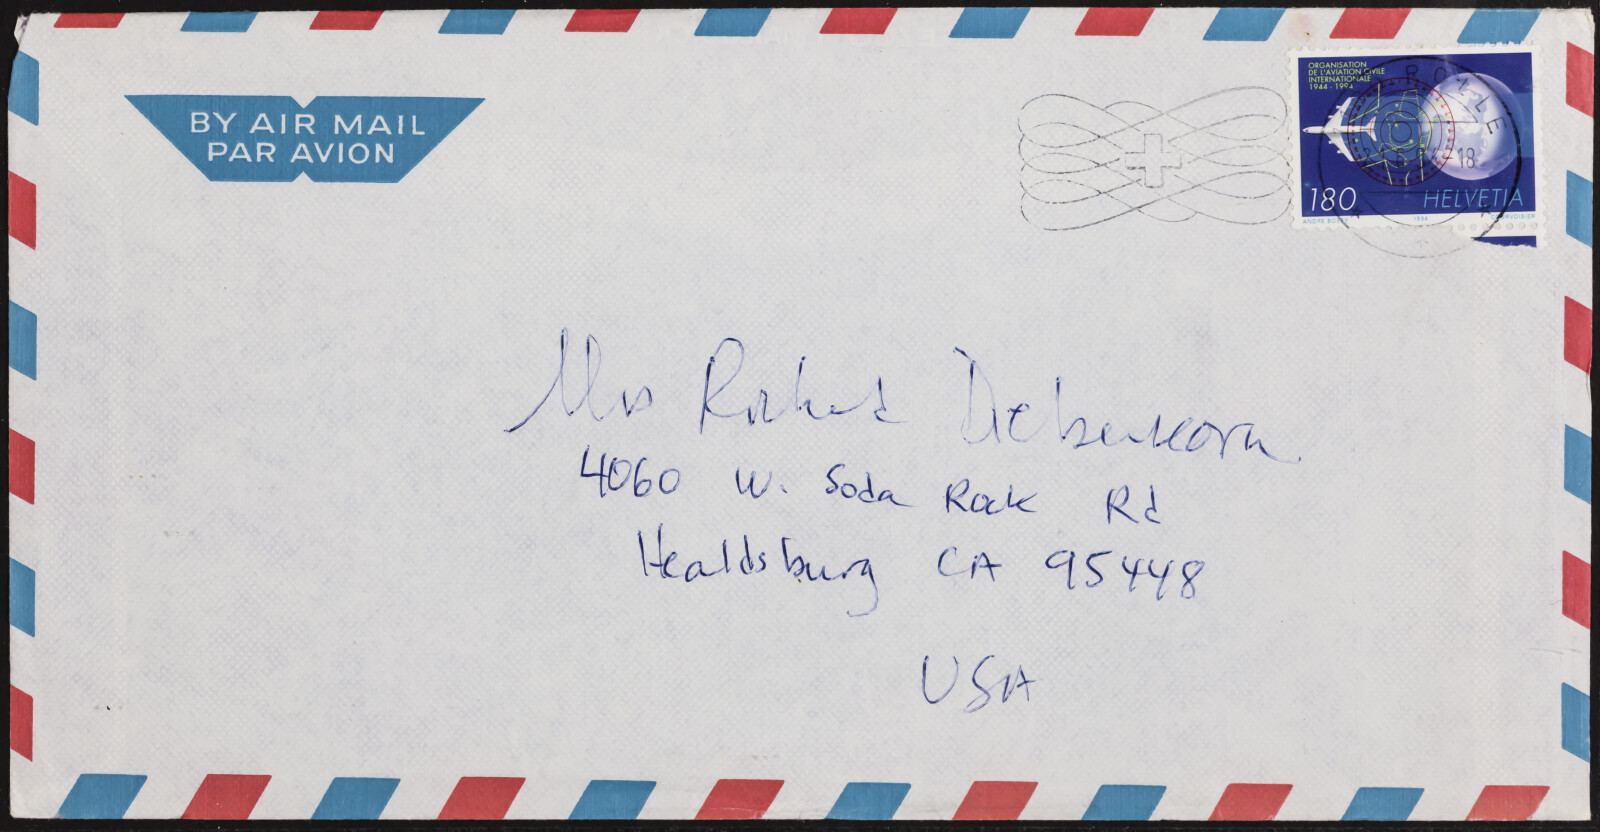 BY AIR MAIL
PAR AVION
ORGANISATION
DE L'AVIATION CIVILE
INTERNATIONALE
1944 - 1994
ROLLE
18
180
HELVETIA
1994
COURVOISIER
Mrs Richard Diebenkorn
4060 W. Soda Rock Rd
Healdsburg CA 95448
USA